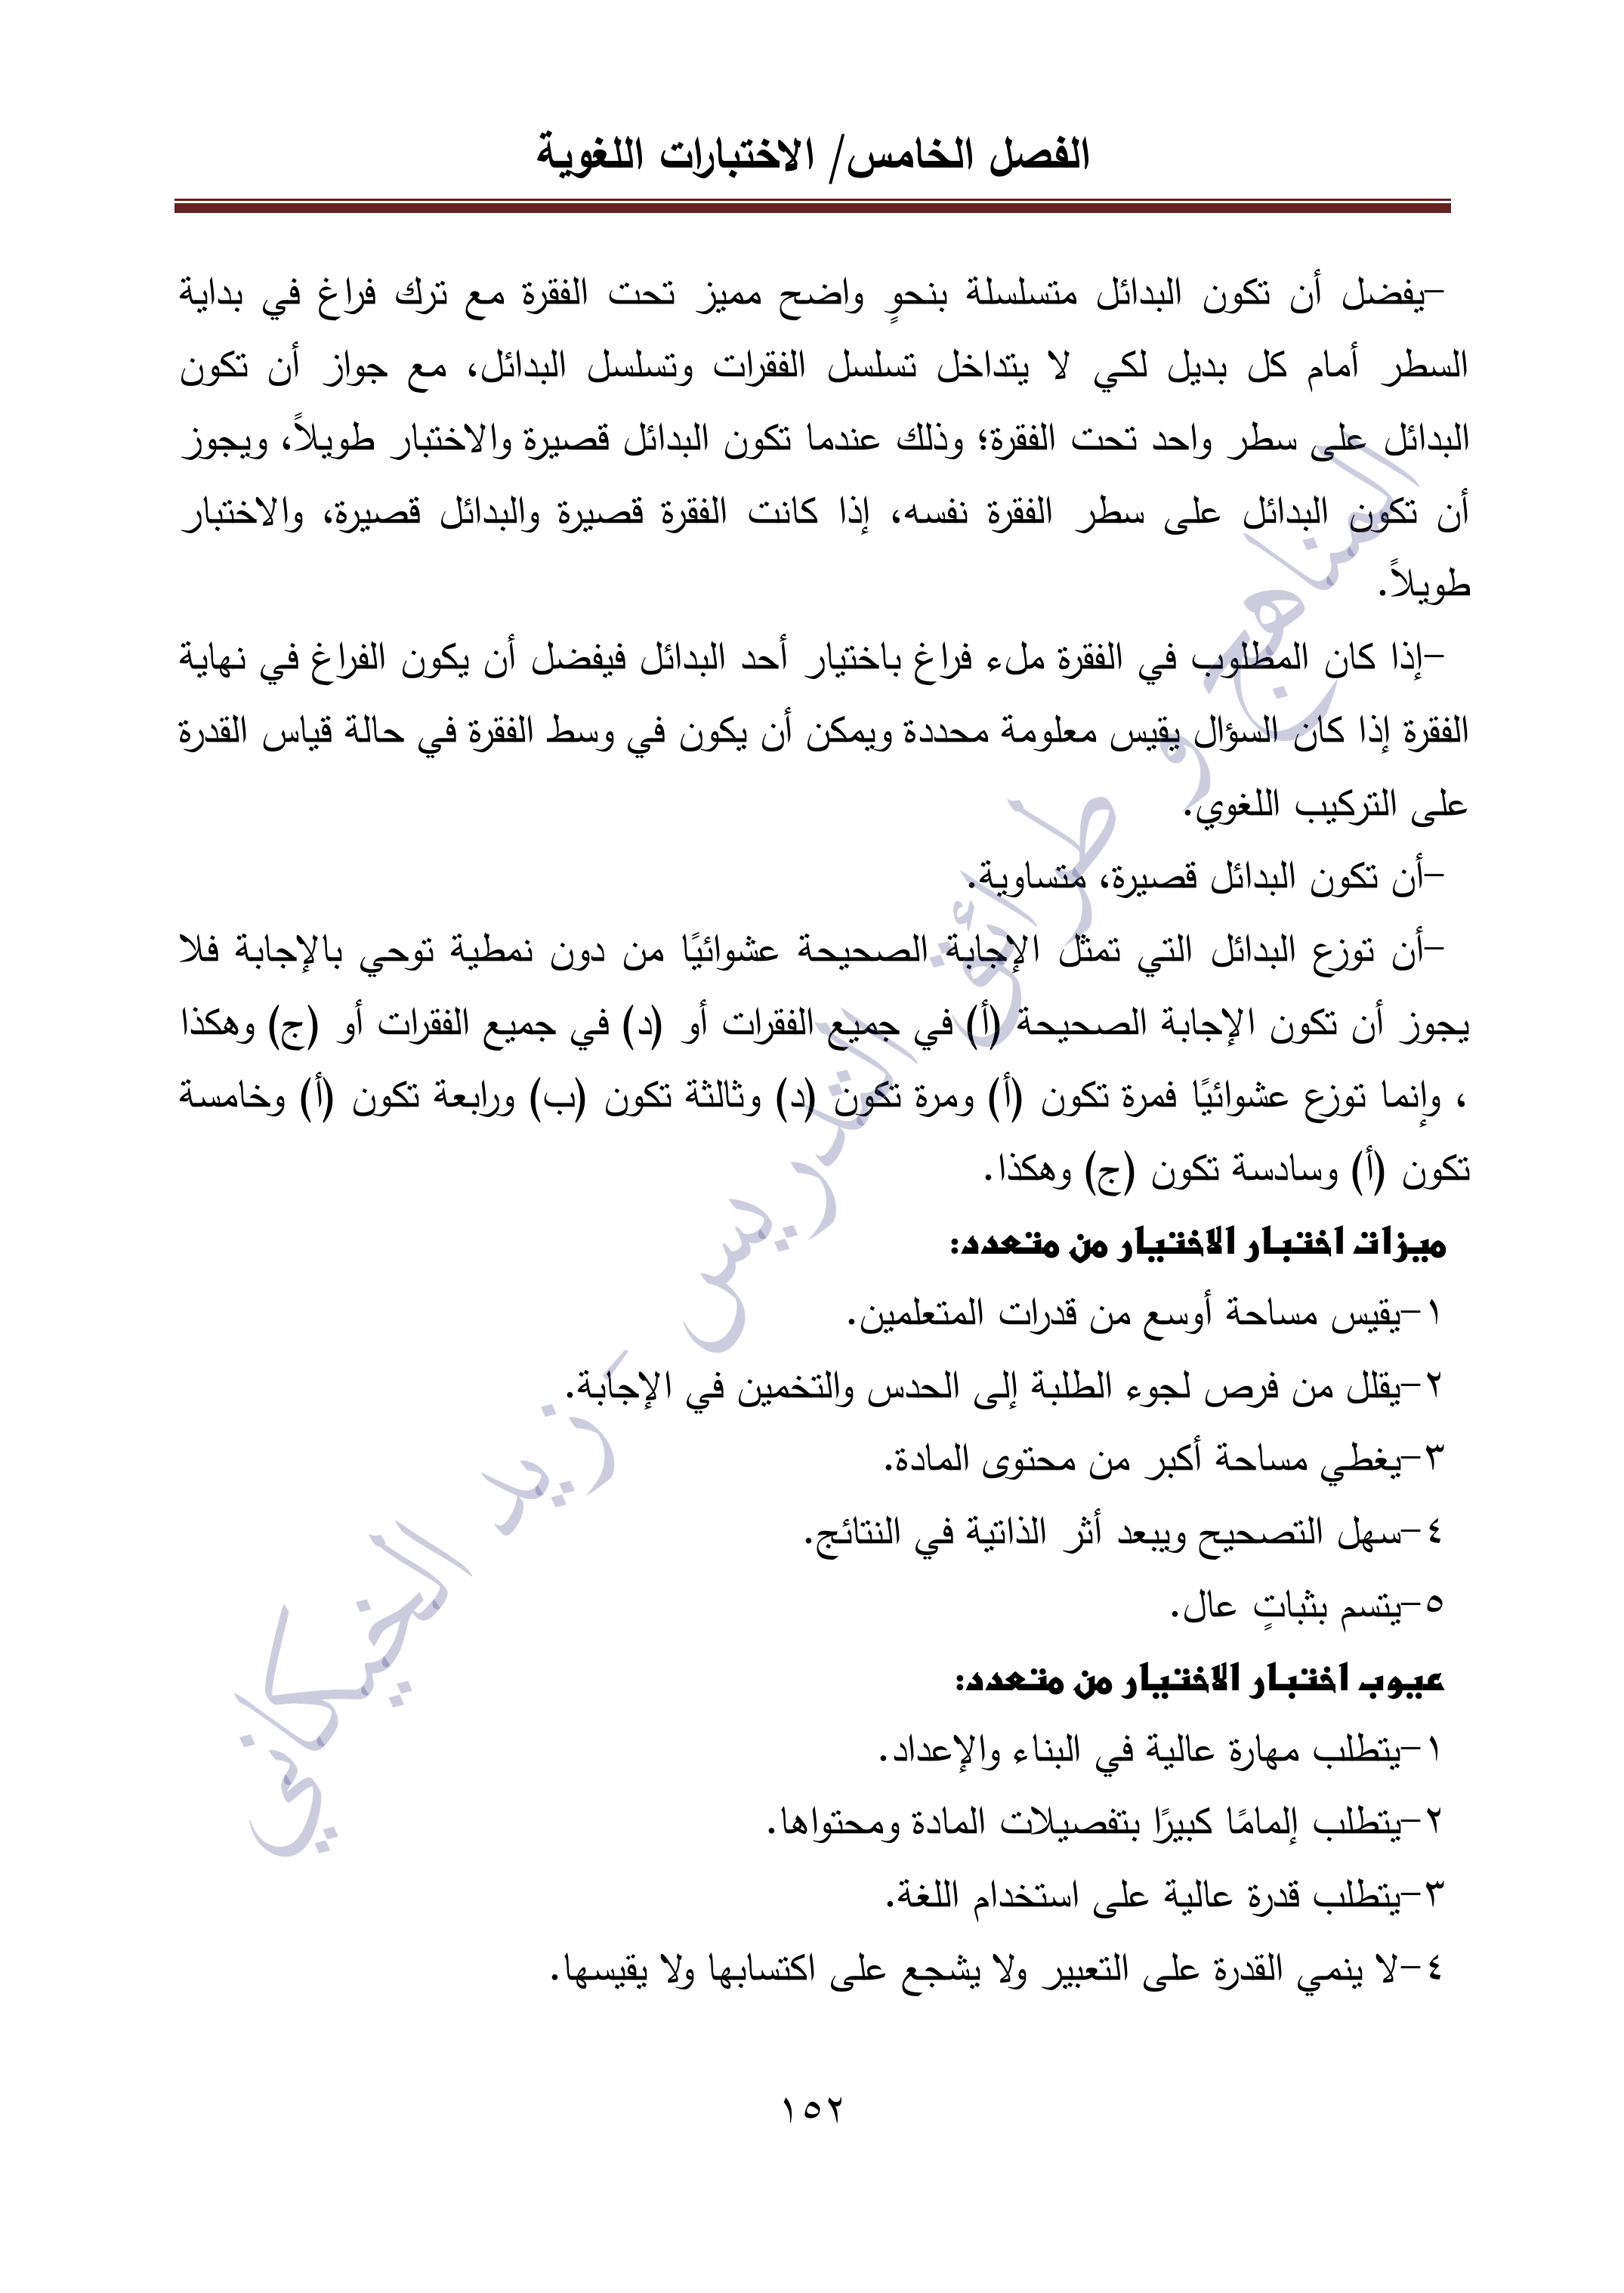 الفصل الخامس/ الاختبارات اللغوية
-يفضل أن تكون البدائل متسلسلة بنحوٍ واضح مميز تحت الفقرة مع ترك فراغ في بداية
السطر أمام كل بديل لكي لا يتداخل تسلسل الفقرات وتسلسل البدائل، مع جواز أن تكون
البدائل على سطر واحد تحت الفقرة؛ وذلك عندما تكون البدائل قصيرة والاختبار طويلاً، ويجوز
أن تكون البدائل على سطر الفقرة نفسه، إذا كانت الفقرة قصيرة والبدائل قصيرة، والاختبار
طويلاً.
-إذا كان المطلوب في الفقرة ملء فراغ باختيار أحد البدائل فيفضل أن يكون الفراغ في نهاية
الفقرة إذا كان السؤال يقيس معلومة محددة ويمكن أن يكون في وسط الفقرة في حالة قياس القدرة
على التركيب اللغوي.
-أن تكون البدائل قصيرة، متساوية.
-أن توزع البدائل التي تمثل الإجابة الصحيحة عشوائيًا من دون نمطية توحي بالإجابة فلا
يجوز أن تكون الإجابة الصحيحة (أ) في جميع الفقرات أو (د) في جميع الفقرات أو (ج) وهكذا
، وإنما توزع عشوائيًا فمرة تكون (أ) ومرة تكون (د) وثالثة تكون (ب) ورابعة تكون (أ) وخامسة
تكون (أ) وسادسة تكون (ج) وهكذا.
ميزات اختبار الاختيار من متعدد:
١-يقيس مساحة أوسع من قدرات المتعلمين.
٢-يقلل من فرص لجوء الطلبة إلى الحدس والتخمين في الإجابة.
٣-يغطي مساحة أكبر من محتوى المادة.
٤-سهل التصحيح ويبعد أثر الذاتية في النتائج.
٥-يتسم بثباتٍ عال.
عيوب اختبار الاختيار من متعدد:
١-يتطلب مهارة عالية في البناء والإعداد.
٢-يتطلب إلمامًا كبيرًا بتفصيلات المادة ومحتواها.
٣-يتطلب قدرة عالية على استخدام اللغة.
٤-لا ينمي القدرة على التعبير ولا يشجع على اكتسابها ولا يقيسها.
١٥٢
المناهج و طرائق التدريس - زيد الخيكاني